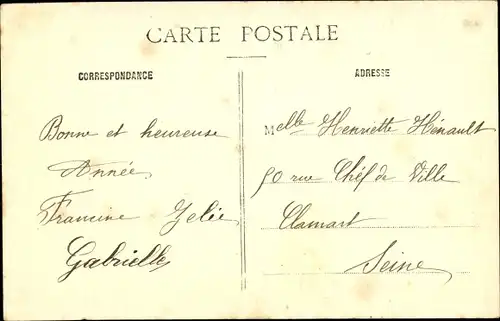 CARTE POSTALE
CORRESPONDANCE
Bonne et heureuse
Année,
Francine Zélie
Gabrielle
ADRESSE
Melle Henriette Hénault
90 rue Chéf de Ville
Clamart
Seine